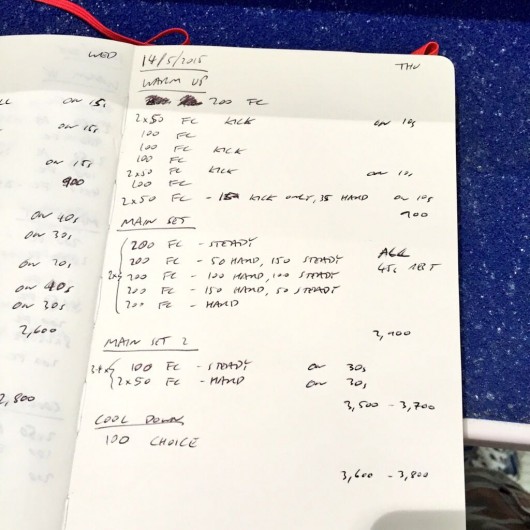 WED
on 15s
on 15s
on 15s
900
on 40s
on 30s
on 40s
on 30s
2,600
2,800
14/5/2015 THU
WARM UP
200 FC
2x50 FC KICK on 10s
100 FC
100 FC KICK
100 FC
2x50 FC KICK on 10s
100 FC
2x50 FC - 15 KICK ONLY, 35 HARD on 10s
900
MAIN SET
200 FC - STEADY
200 FC - 50 HARD, 150 STEADY ALL
2x 200 FC - 100 HARD, 100 STEADY 45s REST
200 FC - 150 HARD, 50 STEADY
200 FC - HARD
2,900
MAIN SET 2
100 FC - STEADY on 30s
2x50 FC - HARD on 30s
3,500 - 3,700
COOL DOWN
100 CHOICE
3,600 - 3,800